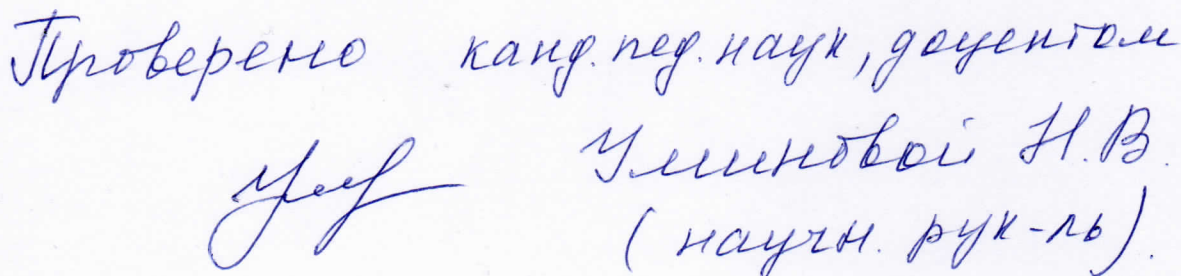 Проверено канд. пед. наук, доцентом
Уминовой Н.В.
(научн. рук-ль).